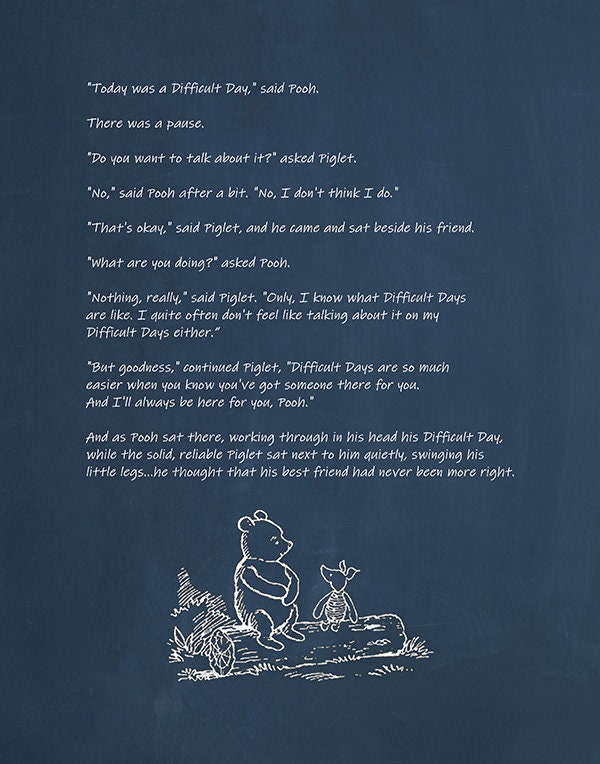 "Today was a Difficult Day," said Pooh.
There was a pause.
"Do you want to talk about it?" asked Piglet.
"No," said Pooh after a bit. "No, I don't think I do."
"That's okay," said Piglet, and he came and sat beside his friend.
"What are you doing?" asked Pooh.
"Nothing, really," said Piglet. "Only, I know what Difficult Days
are like. I quite often don't feel like talking about it on my
Difficult Days either."
"But goodness," continued Piglet, "Difficult Days are so much
easier when you know you've got someone there for you.
And I'll always be here for you, Pooh."
And as Pooh sat there, working through in his head his Difficult Day,
while the solid, reliable Piglet sat next to him quietly, swinging his
little legs...he thought that his best friend had never been more right.